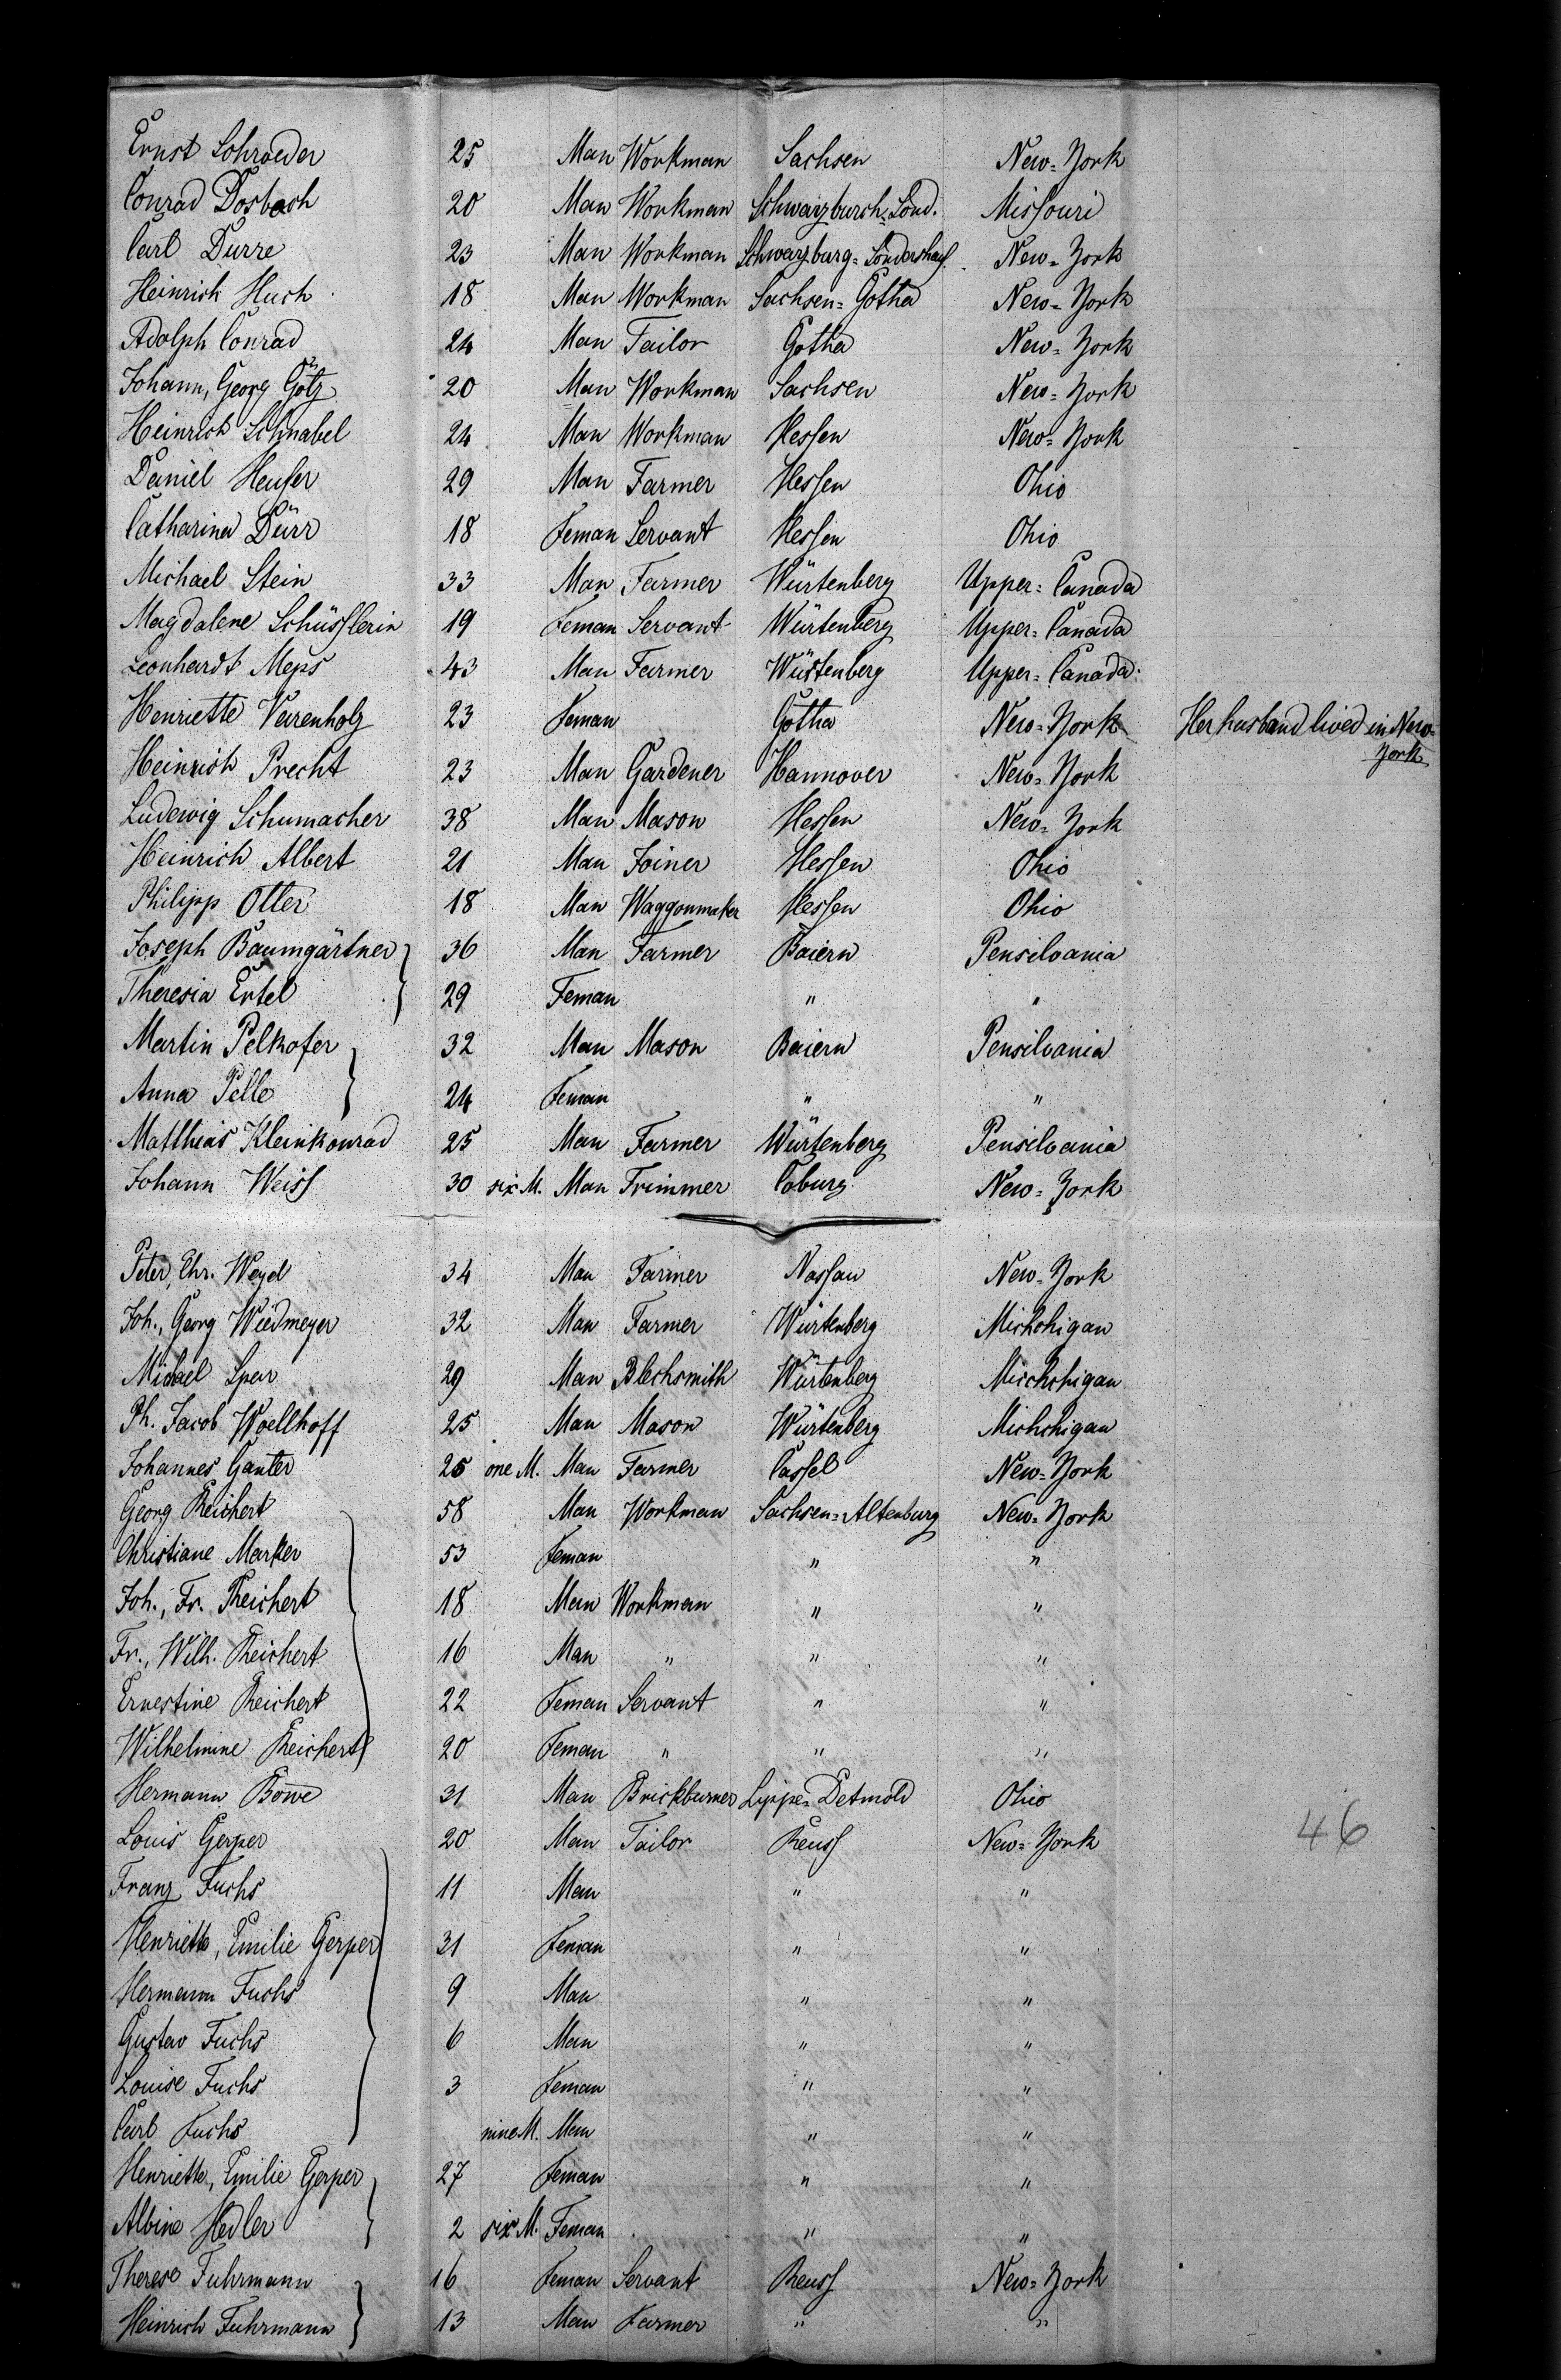 Ernst Schroeder 25 Man Workman Sachsen New-York
Conrad Dosbach 20 Man Workman Schwarzburch-Sond. Missouri
Carl Durre 23 Man Workman Schwarzburg-Sondershaus. New-York
Heinrich Huch 18 Man Workman Sachsen-Gotha New-York
Adolph Conrad 24 Man Tailor Gotha New-York
Johann, Georg Götz 20 Man Workman Sachsen New-York
Heinrich Schnabel 24 Man Workman Hessen New-York
Daniel Heuser 29 Man Farmer Hessen Ohio
Catharina Dürr 18 Feman Servant Hessen Ohio
Michael Stein 33 Man Farmer Würtenberg Upper-Canada
Magdalene Schüsslerin 19 Feman Servant Würtenberg Upper-Canada
Leonhardt Meps 43 Man Farmer Würtenberg Upper-Canada
Henriette Varenholz 23 Feman Gotha New-York Her husband lived in New-
York
Heinrich Precht 23 Man Gardener Hannover New-York
Ludewig Schumacher 38 Man Mason Hessen New-York
Heinrich Albert 21 Man Joiner Hessen Ohio
Philipp Otter 18 Man Waggonmaker Hessen Ohio
Joseph Baumgärtner 36 Man Farmer Baiern Pensilvania
Theresia Ertel 29 Feman " "
Martin Pelkofer 32 Man Mason Baiern Pensilvania
Anna Pelle 24 Feman " "
Matthias Kleinkonrad 25 Man Farmer Würtenberg Pensilvania
Johann Weiss 30 six M. Man Trimmer Coburg New-York
Peter, Chr. Weyd 34 Man Farmer Nassau New-York
Joh., Georg Wiedmeyer 32 Man Farmer Würtenberg Michchigan
Michael Spar 29 Man Blechsmith Würtenberg Michchigan
Ph. Jacob Woellhoff 25 Man Mason Würtenberg Michchigan
Johannes Ganter 25 one M. Man Farmer Cassel New-York
Georg Reichert 58 Man Workman Sachsen-Altenburg New-York
Christiane Marker 53 Feman " "
Joh., Fr. Reichert 18 Man Workman " "
Fr., Wilh. Reichert 16 Man " " "
Ernestine Reichert 22 Feman Servant " "
Wilhelmine Reichert 20 Feman " " "
Hermann Bowe 31 Man Brickburner Lippe-Detmold Ohio
Louis Gerper 20 Man Tailor Reuss New-York 46
Franz Fuchs 11 Man " "
Henriette, Emilie Gerper 31 Feman " "
Hermann Fuchs 9 Man " "
Gustav Fuchs 6 Man " "
Louise Fuchs 3 Feman " "
Carl Fuchs nine M. Man " "
Henriette, Emilie Gerper 27 Feman " "
Albine Hedler 2 six M. Feman " "
Therese Fuhrmann 16 Feman Servant Reuss New-York
Heinrich Fuhrmann 13 Man Farmer " "